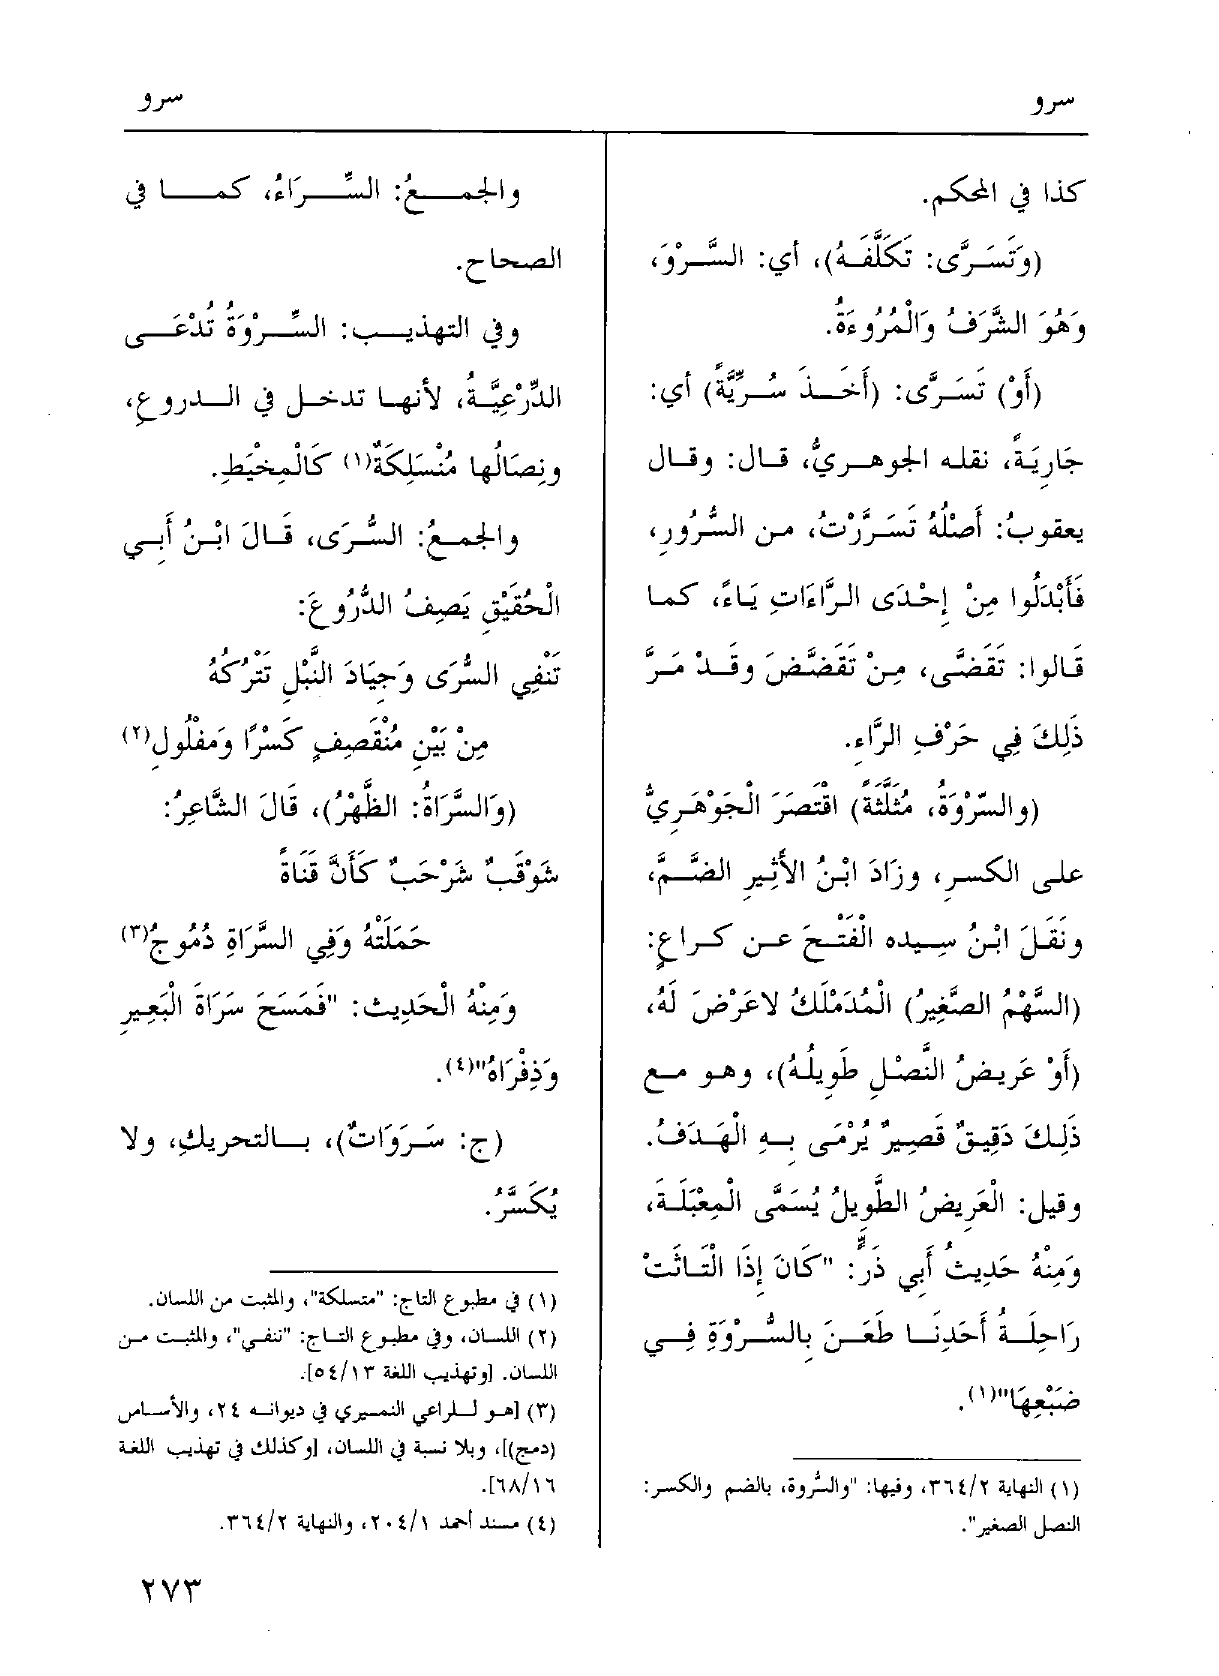 سرو
سرو
كذا في المحكم.
(وَتَسَرَّى: تَكَلَّفَهُ)، أي: السَّرْوَ،
وَهُوَ الشَّرَفُ وَالْمُرُوءَةُ.
(أَوْ) تَسَرَّى: (أَخَذَ سُرِّيَّةً) أي:
جَارِيَةً، نقله الجوهريُّ، قال: وقال
يعقوبُ: أَصْلُهُ تَسَرَّرْتُ، من السُّرُورِ،
فَأَبْدَلُوا مِنْ إِحْدَى الرَّاءَاتِ يَاءً، كما
قَالوا: تَقَضَّى، مِنْ تَقَضَّضَ وقَدْ مَرَّ
ذَلِكَ فِي حَرْفِ الرَّاءِ.
(والسّرْوَةُ، مُثَلَّثَةً) اقْتَصَرَ الْجَوْهَرِيُّ
على الكسرِ، وزَادَ ابْنُ الأَثِيرِ الضَّمَّ،
ونَقَلَ ابْنُ سِيده الْفَتْحَ عن كراعٍ:
(السَّهْمُ الصَّغِيرُ) الْمُدَمْلَكُ لاعَرْضَ لَهُ،
(أَوْ عَرِيضُ النَّصْلِ طَوِيلُهُ)، وهو مع
ذَلِكَ دَقِيقٌ قَصِيرٌ يُرْمَى بِهِ الْهَدَفُ.
وقيل: الْعَرِيضُ الطَّوِيلُ يُسَمَّى الْمِعْبَلَةَ،
وَمِنْهُ حَدِيثُ أَبِي ذَرٍّ: "كَانَ إِذَا الْتَاثَتْ
رَاحِلَةُ أَحَدِنَا طَعَنَ بِالسُّرْوَةِ فِي
ضَبْعِهَا"(١).
(١) النهاية ٣٦٤/٢، وفيها: "والسُّروة، بالضم والكسر:
النصل الصغير".
والجمعُ: السِّرَاءُ، كما في
الصحاح.
وفي التهذيب: السِّرْوَةُ تُدْعَى
الدِّرْعِيَّةُ، لأنها تدخل في الدروع،
ونِصَالُها مُنْسَلِكَةٌ(١) كَالْمِخْيَطِ.
والجمعُ: السُّرَى، قَالَ ابْنُ أَبي
الْحُقَيْقِ يَصِفُ الدُّرُوعَ:
تَنْفِي السُّرَى وَجِيَادَ النَّبْلِ تَتْرُكُهُ
مِنْ بَيْنِ مُنْقَصِفٍ كَسْرًا وَمَفْلُولِ(٢)
(وَالسَّرَاةُ: الظَّهْرُ)، قَالَ الشَّاعِرُ:
شَوْقَبٌ شَرْحَبٌ كَأَنَّ قَنَاةً
حَمَلَتْهُ وَفِي السَّرَاةِ دُمُوجُ(٣)
وَمِنْهُ الْحَدِيث: "فَمَسَحَ سَرَاةَ الْبَعِيرِ
وَذِفْرَاهُ"(٤).
(ج: سَرَوَاتٌ)، بالتحريكِ، ولا
يُكَسَّرُ.
(١) في مطبوع التاج: "متسلكة"، والمثبت من اللسان.
(٢) اللسان، وفي مطبوع التاج: "ننفي"، والمثبت من
اللسان. [وتهذيب اللغة ٥٤/١٣].
(٣) [هو للراعي النميري في ديوانه ٢٤، والأساس
(دمج)]، وبلا نسبة في اللسان، [وكذلك في تهذيب اللغة
٦٨/١٦].
(٤) مسند أحمد ٢٠٤/١، والنهاية ٣٦٤/٢.
٢٧٣